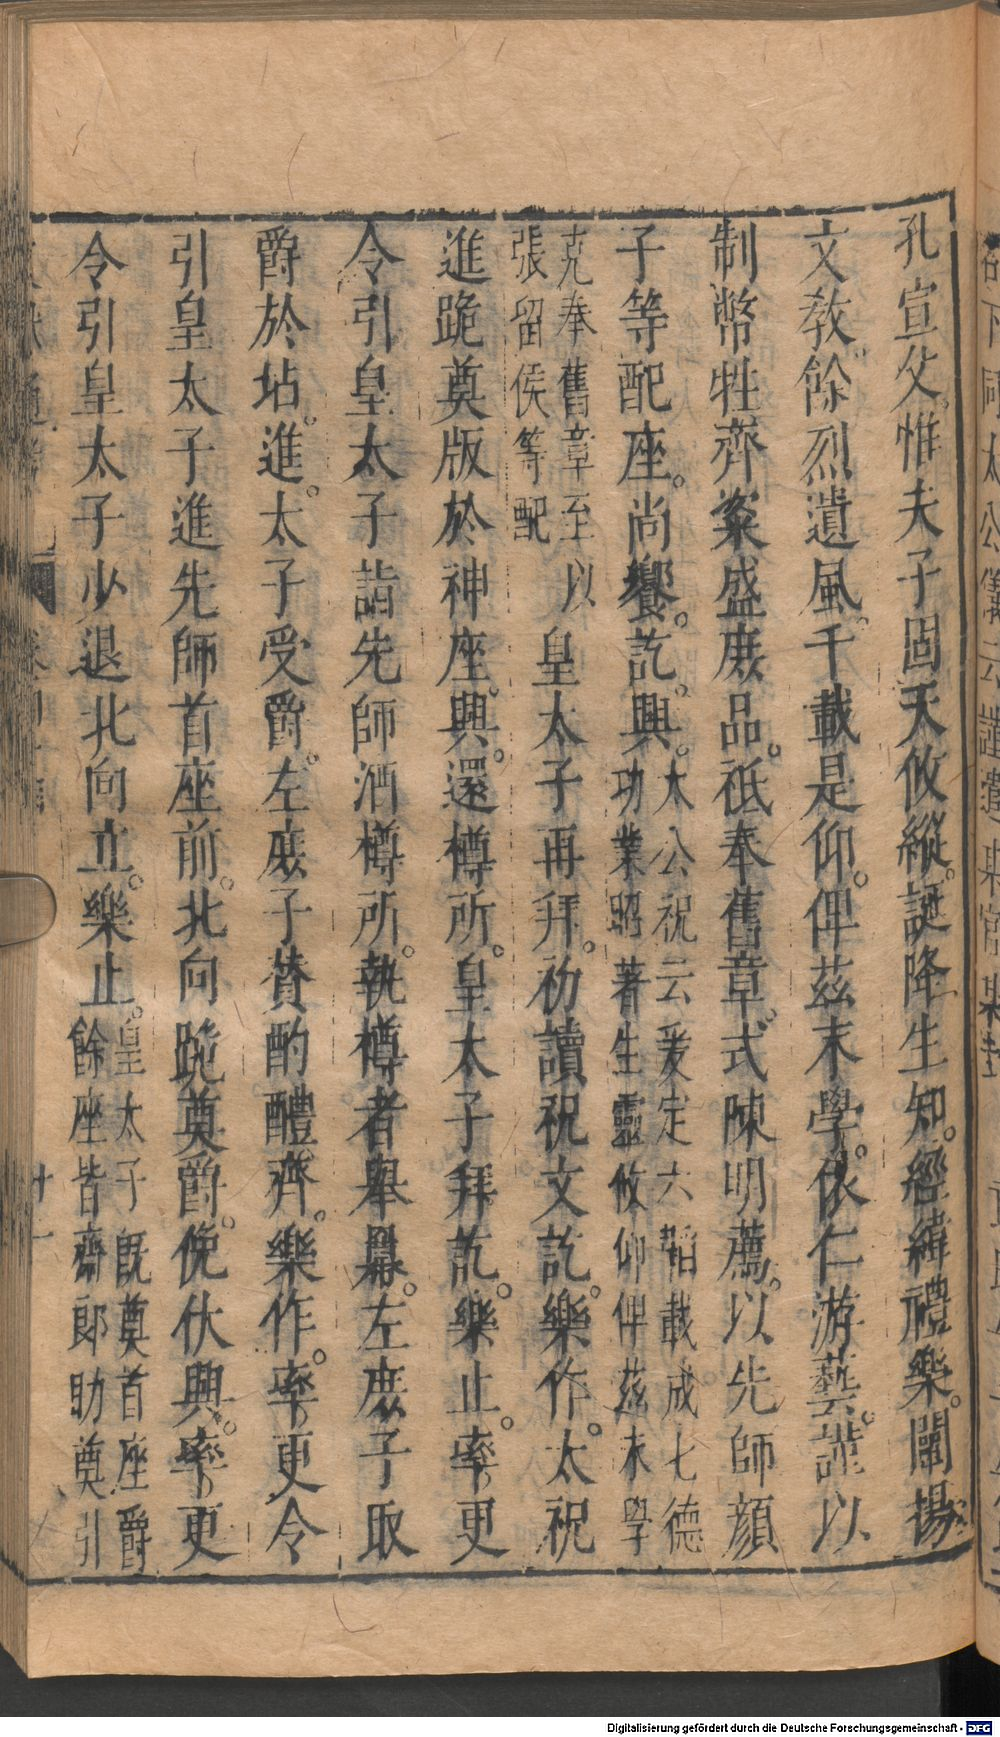 孔宣父。惟夫子固天攸縱。誕降生知。經緯禮樂。闡揚
文教。餘烈遺風。千載是仰。俾茲末學。依仁游藝。謹以
制幣牲齊粢盛庶品。祗奉舊章。式陳明薦。以先師顏
子等配座。尚饗。訖。興。太公祝云爰定六韜載成七德
功業昭著生靈攸仰俾茲末學
克奉舊章至以
張留侯等配
皇太子再拜。初讀祝文訖。樂作。太祝
進跪奠版於神座。興。還樽所。皇太子拜訖。樂止。率更
令引皇太子詣先師酒樽所。執樽者舉羃。左庶子取
爵於坫。進。太子受爵。左庶子贊酌醴齊。樂作。率更令
引皇太子進先師首座前。北向跪奠爵。俛伏興。率更
令引皇太子少退北向立。樂止。皇太子既奠首座爵
餘座皆齋郎助奠引
十一
Digitalisierung gefördert durch die Deutsche Forschungsgemeinschaft - DFG